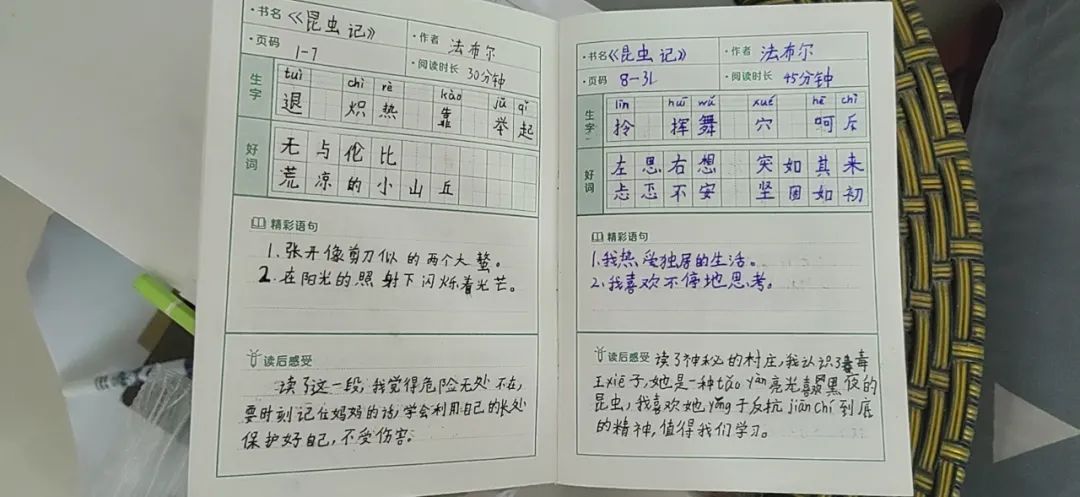 ·书名《昆虫记》 ·作者 法布尔
·页码 1-7 ·阅读时长 30分钟
生字
tuì chì rè kào jǔ qǐ
退 炽热 靠 举起
好词
无与伦比
荒凉的小山丘
精彩语句
1.张开像剪刀似的两个大螯。
2.在阳光的照射下闪烁着光芒。
读后感受
读了这一段,我觉得危险无处不在,
要时刻记住妈妈的话,学会利用自己的长处
保护好自己,不受伤害。
·书名《昆虫记》 ·作者 法布尔
·页码 8-31 ·阅读时长 45分钟
生字
līn huī wǔ xué hē chì
拎 挥舞 穴 呵斥
好词
左思右想 突如其来
忐忑不安 坚固如初
精彩语句
1.我热爱独居的生活。
2.我喜欢不停地思考。
读后感受 读了神秘的村庄,我认识了毒
王xiē子,她是一种tǎo yàn亮光喜黑夜的
昆虫,我喜欢她yǒng于反抗jiān chí到底
的精神,值得我们学习。